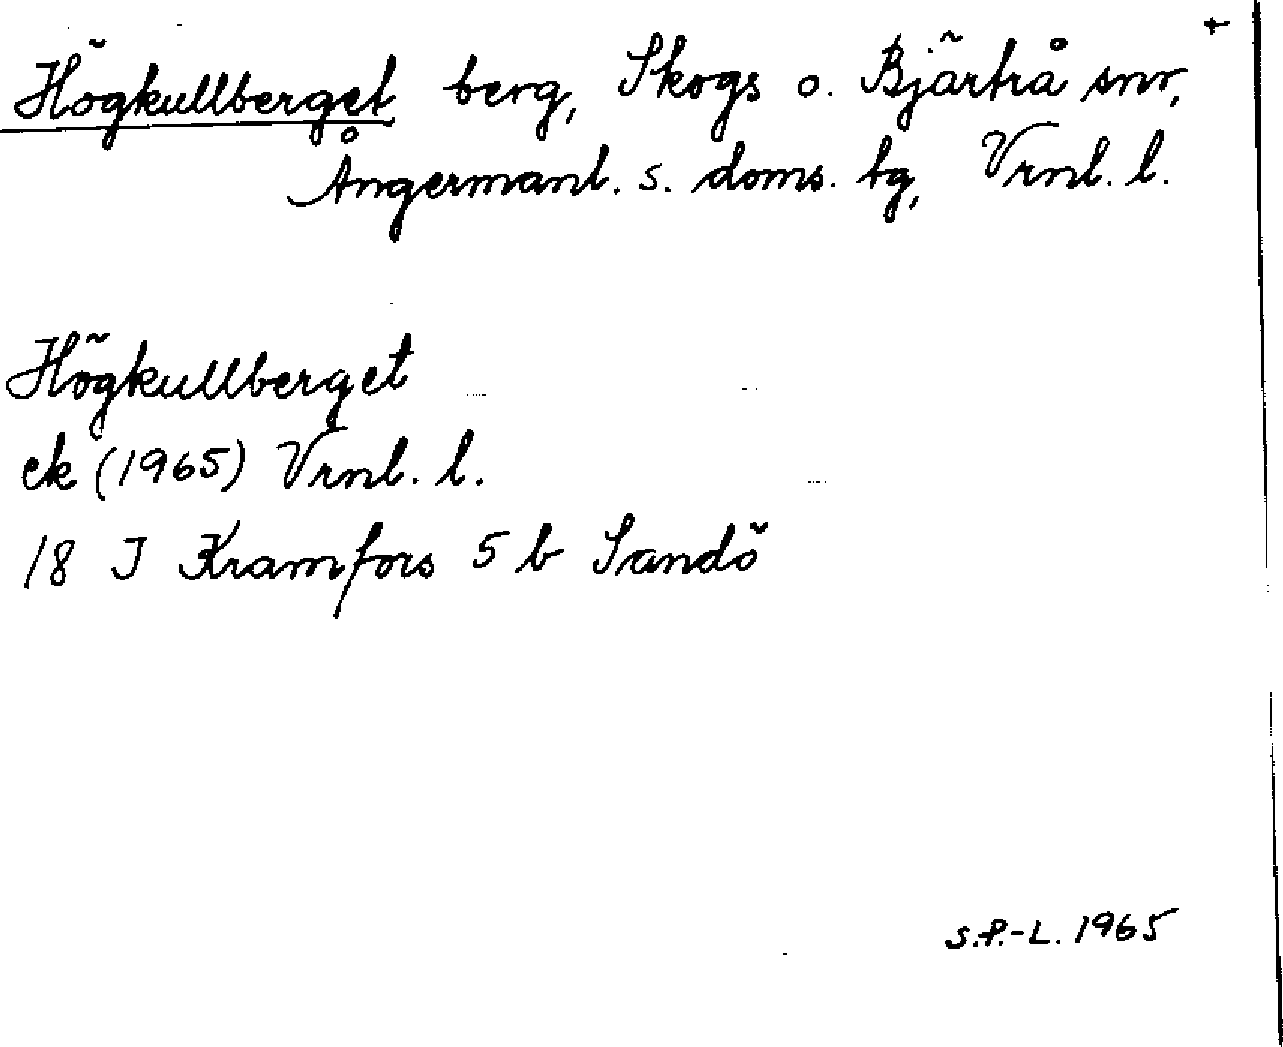 Högkullberget berg, Skogs o. Bjärtrå snr,
Ångermanl. s. doms. tg, Vrnl. l.
Högkullberget
ek (1965) Vrnl. l.
18 J Kramfors 5 b Sandö
S.P.-L. 1965